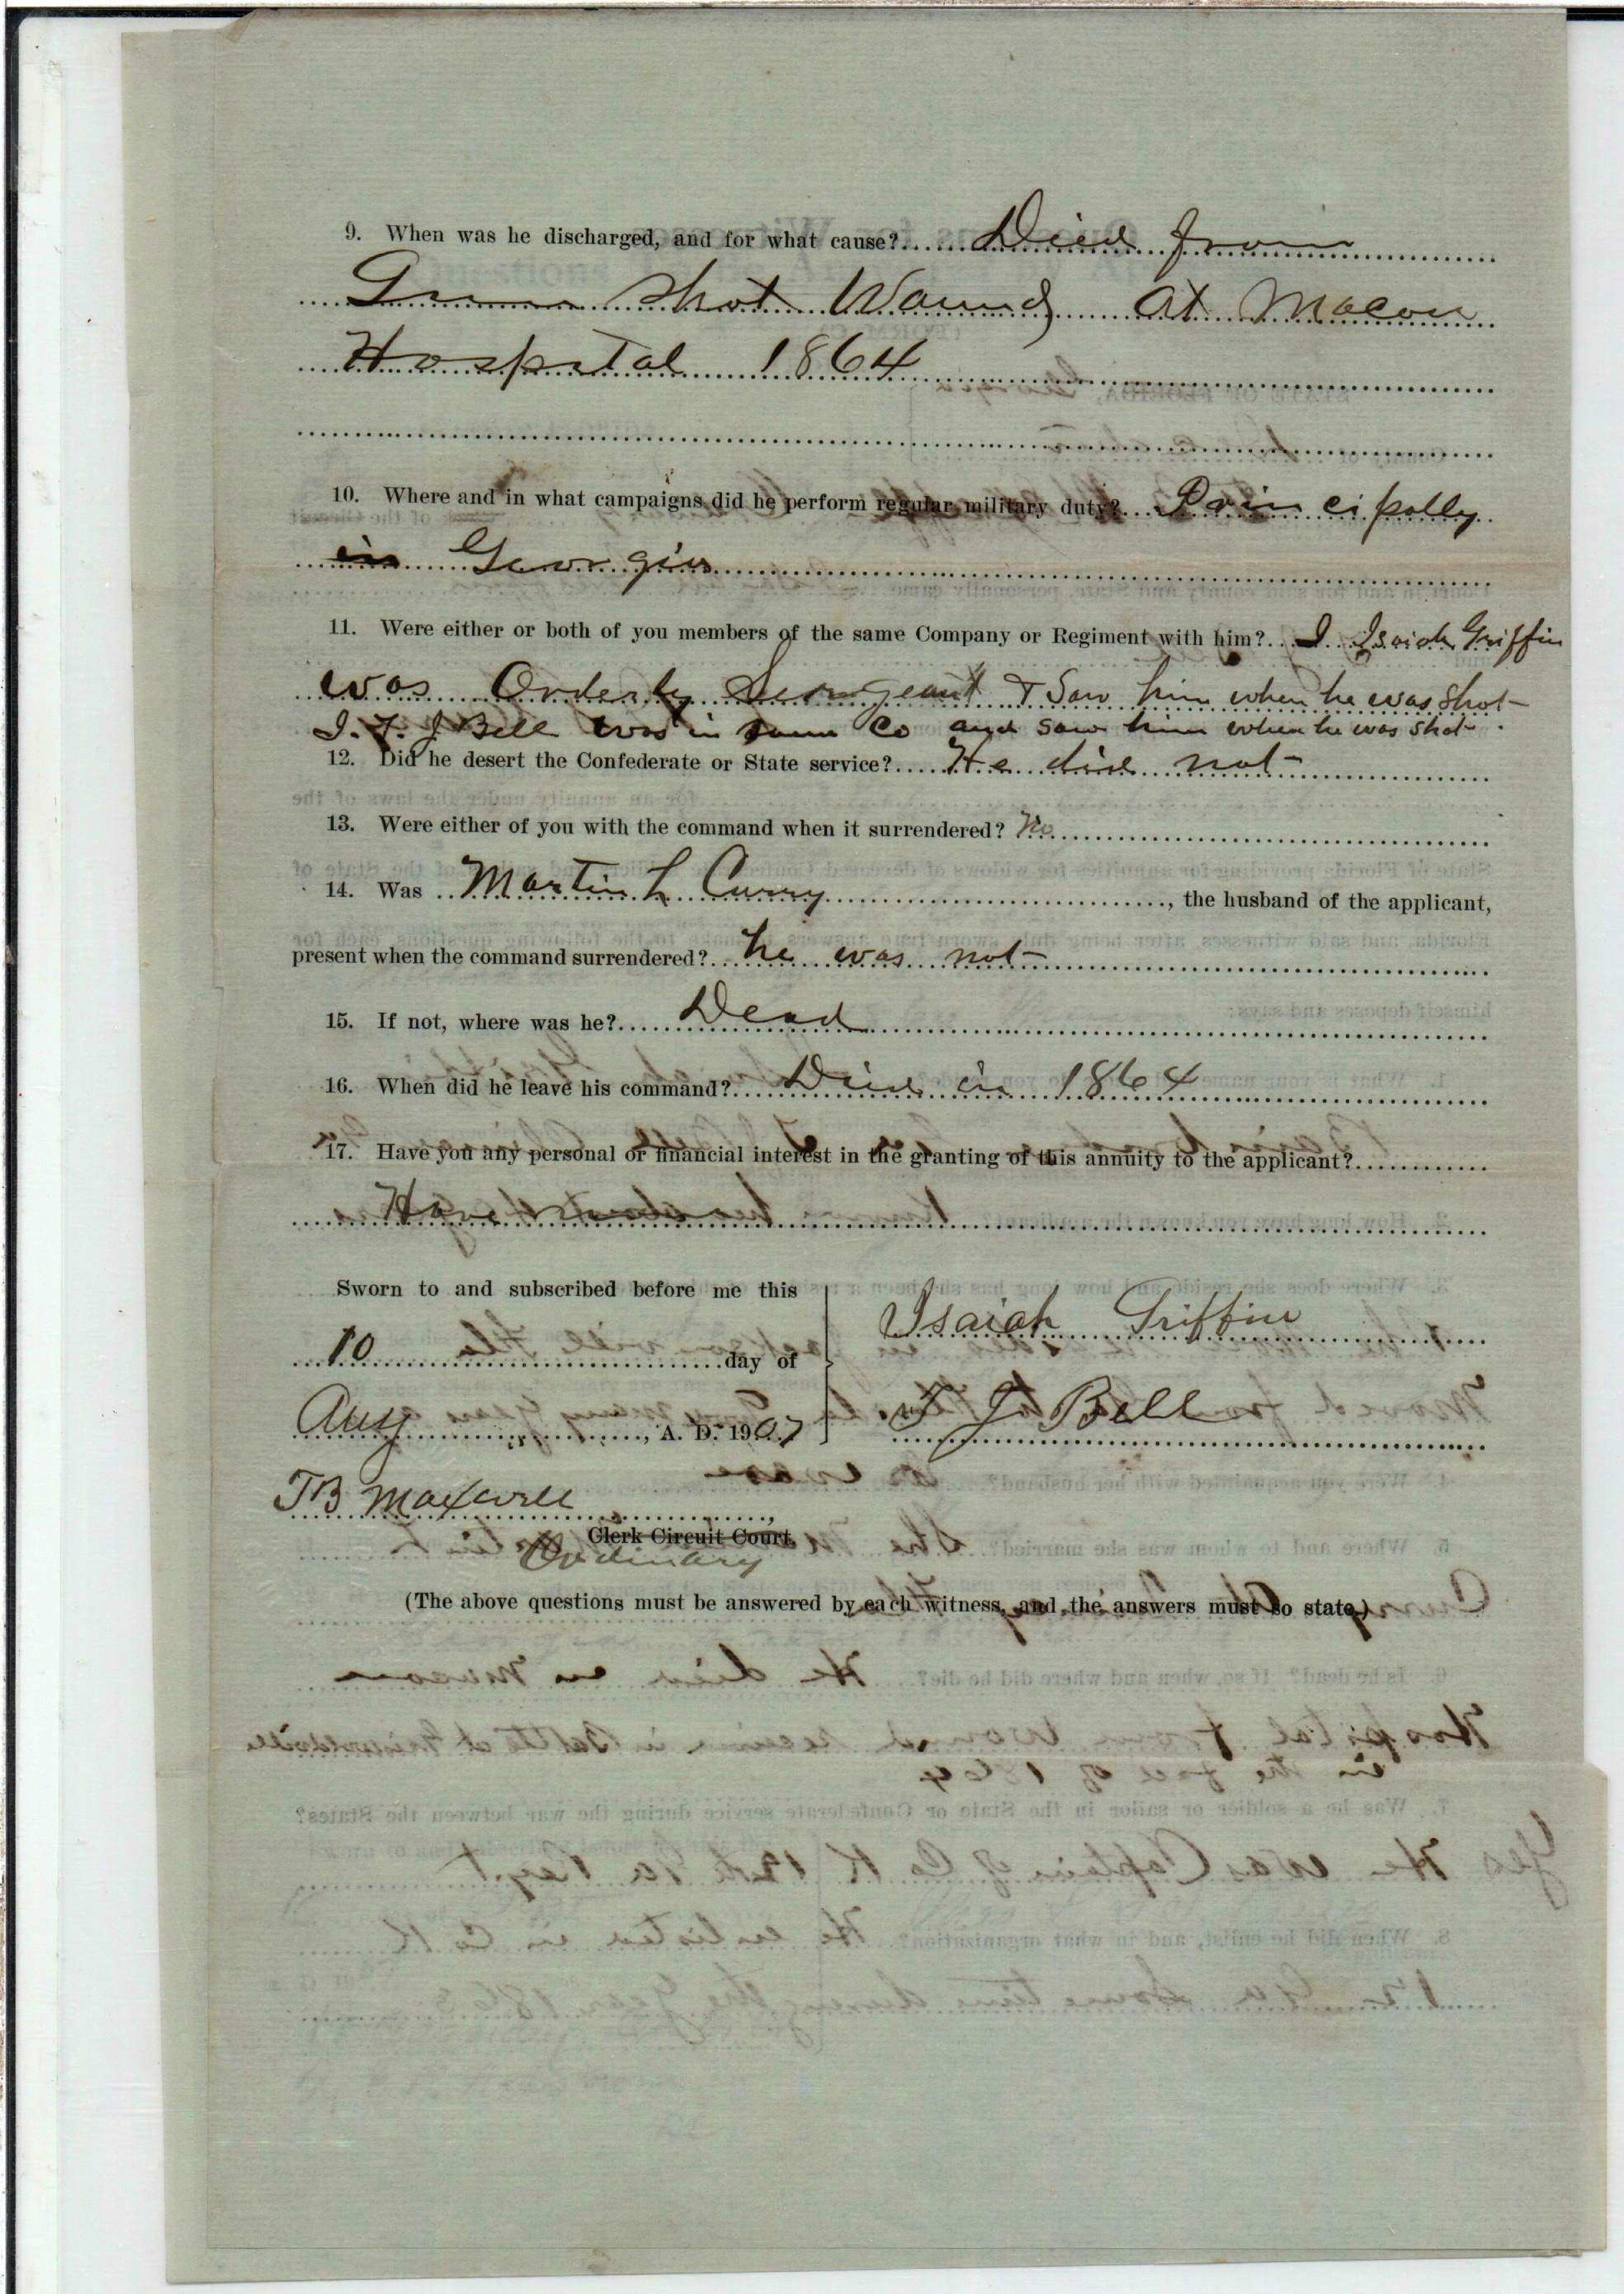 9. When was he discharged, and for what cause? Died from
Gunn shot Wound at Macon
Hospital 1864
10. Where and in what campaigns did he perform regular military duty? Principally
in Georgia
11. Were either or both of you members of the same Company or Regiment with him? I Isaiah Griffin
was Orderly Seargeant & Saw him when he was shot
I. T. J Bell was in same Co and saw him when he was shot
12. Did he desert the Confederate or State service? He did not
13. Were either of you with the command when it surrendered? No
14. Was Martin L Curry, the husband of the applicant,
present when the command surrendered? he was not
15. If not, where was he? Dead
16. When did he leave his command? Died in 1864
17. Have you any personal or financial interest in the granting of this annuity to the applicant?
Have
Sworn to and subscribed before me this
10 day of
Aug, A. D. 1907
Isaiah Griffin
T J Bell
TB Maxwell,
Clerk Circuit Court.
Ordinary
(The above questions must be answered by each witness, and the answers must so state.)